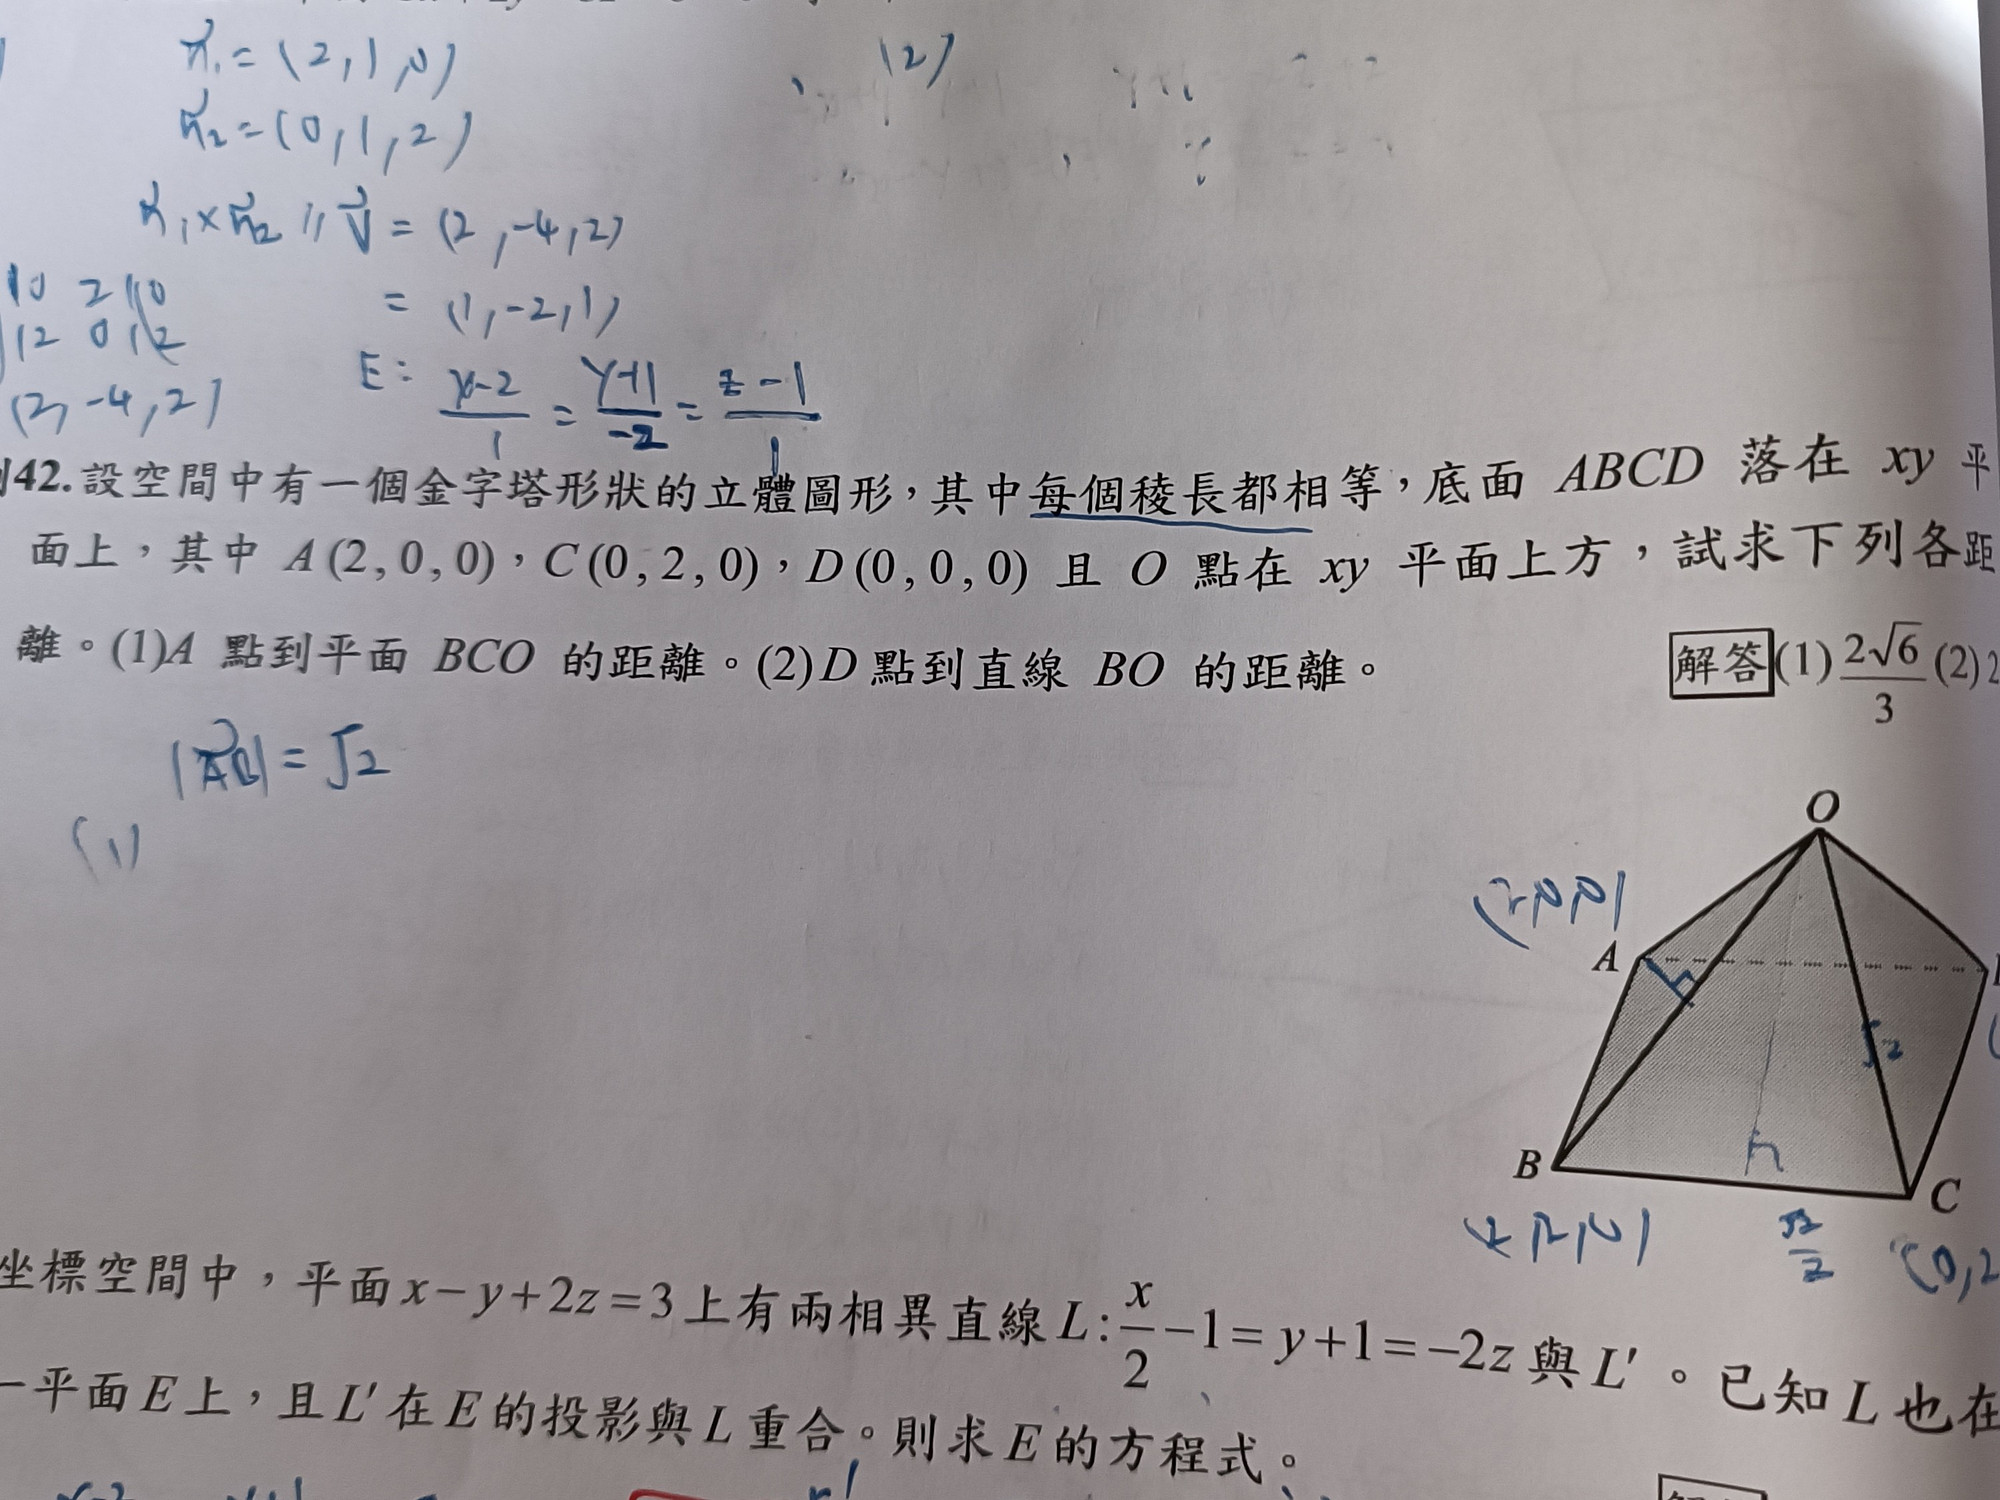 n₁ = (2,1,0)
(2)
n₂ = (0,1,2)
n₁×n₂ // V = (2,-4,2)
10 2 1 10
= (1,-2,1)
12 0 1 2
(2,-4,2)
E: x-2/1 = y+1/-2 = z-1/1
42.設空間中有一個金字塔形狀的立體圖形,其中每個稜長都相等,底面 ABCD 落在 xy 平
面上,其中 A(2,0,0),C(0,2,0),D(0,0,0) 且 O 點在 xy 平面上方,試求下列各距
離。(1)A 點到平面 BCO 的距離。(2)D 點到直線 BO 的距離。
解答 (1) 2√6/3 (2) 2
= √2
(1)
O
A
√2
h
B
C
√2/2
(0,2
坐標空間中,平面 x-y+2z=3 上有兩相異直線 L: x/2 -1=y+1=-2z 與 L′。已知 L 也在
一平面 E 上,且 L′ 在 E 的投影與 L 重合。則求 E 的方程式。